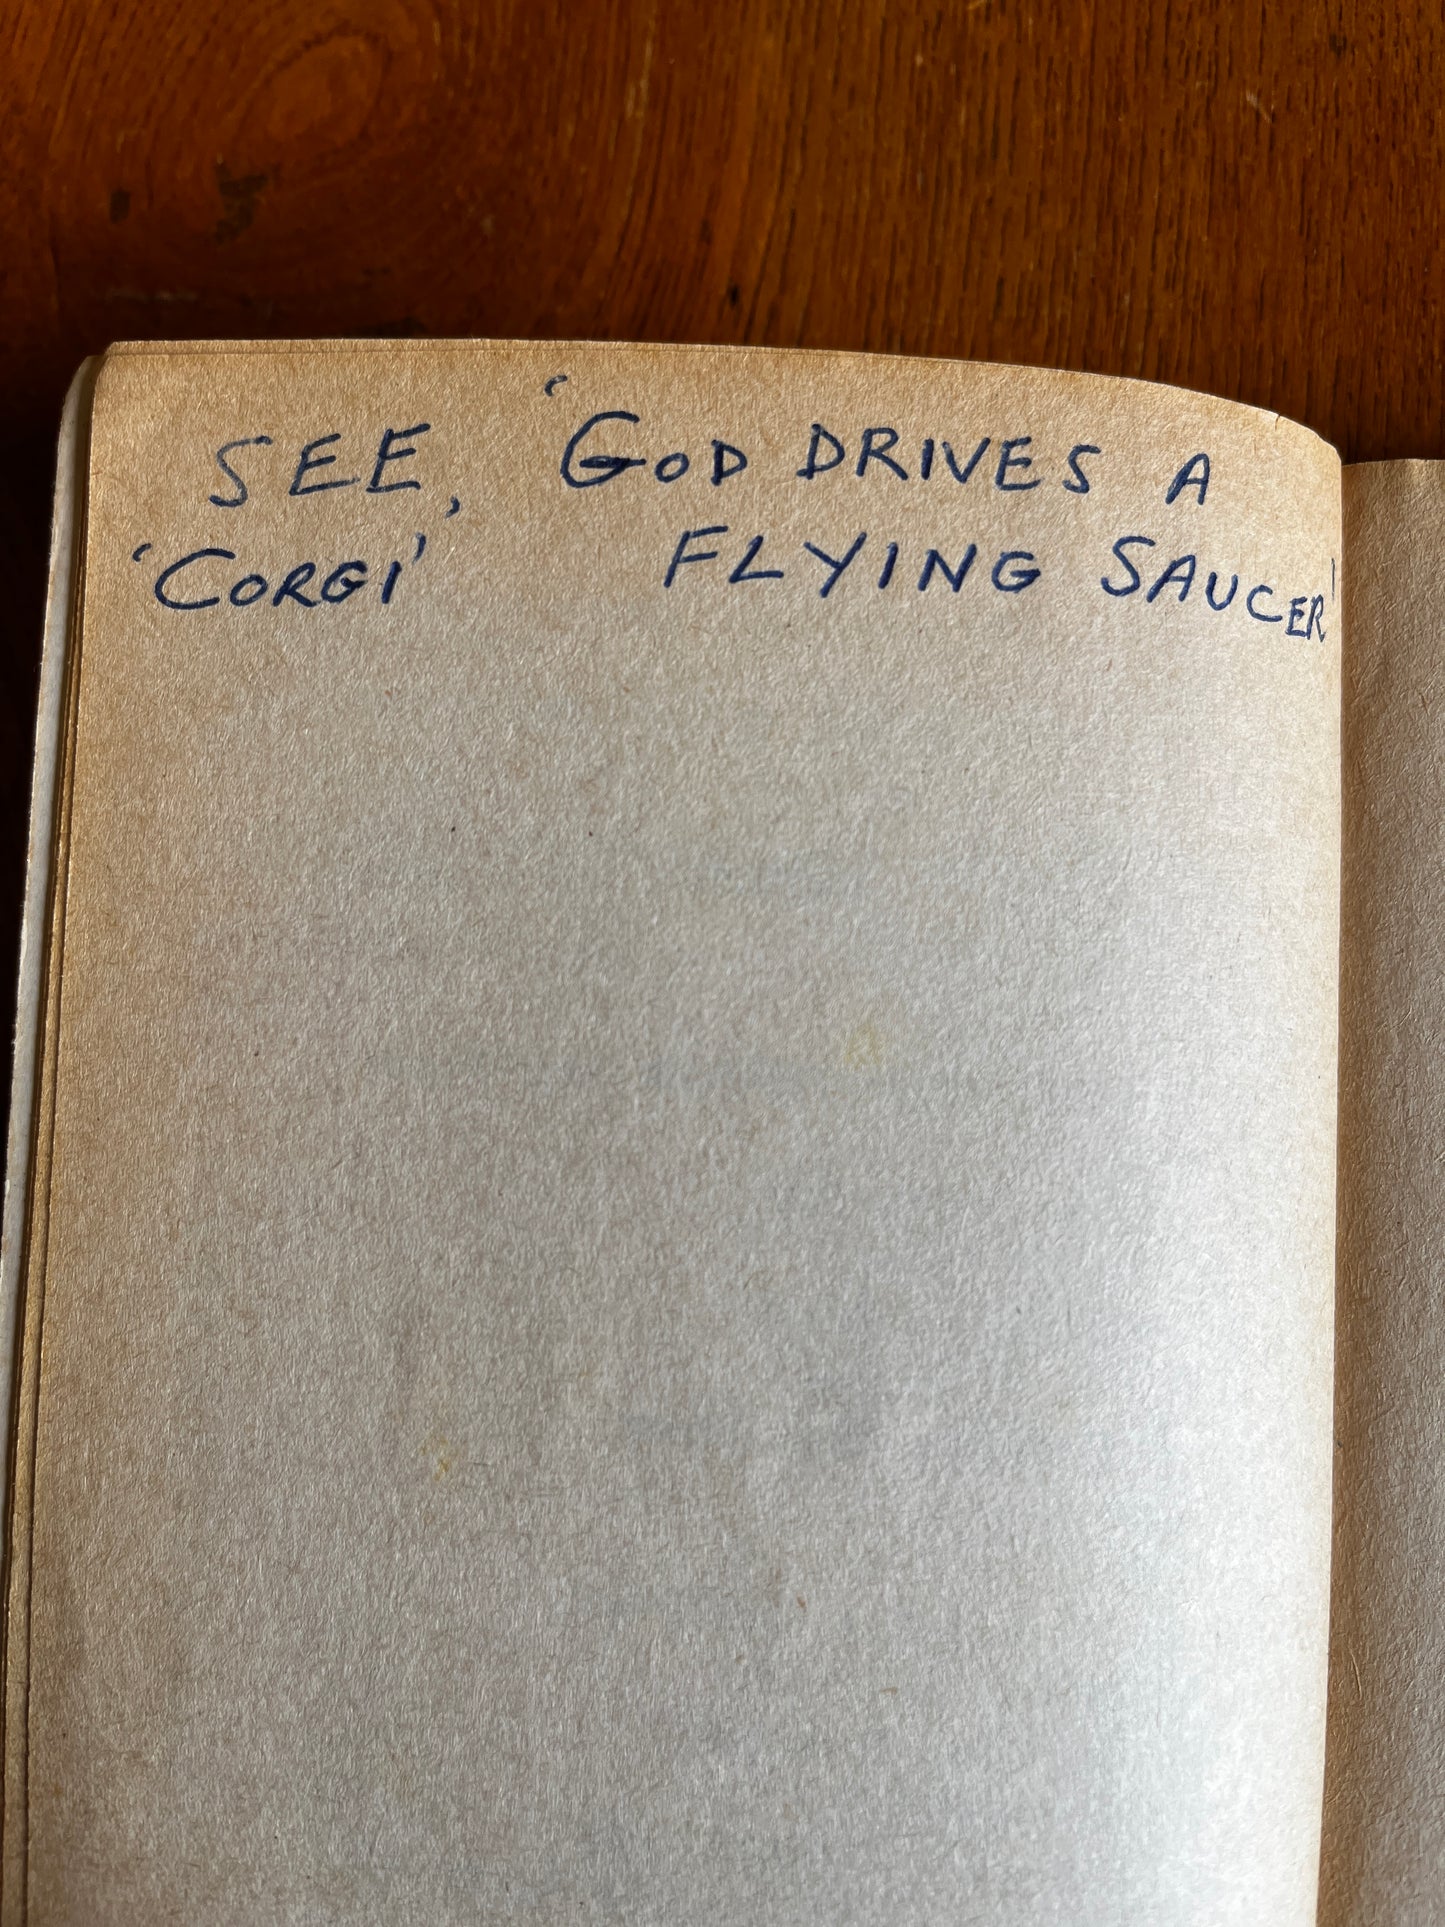 SEE, 'GOD DRIVES A
'CORGI' FLYING SAUCER'